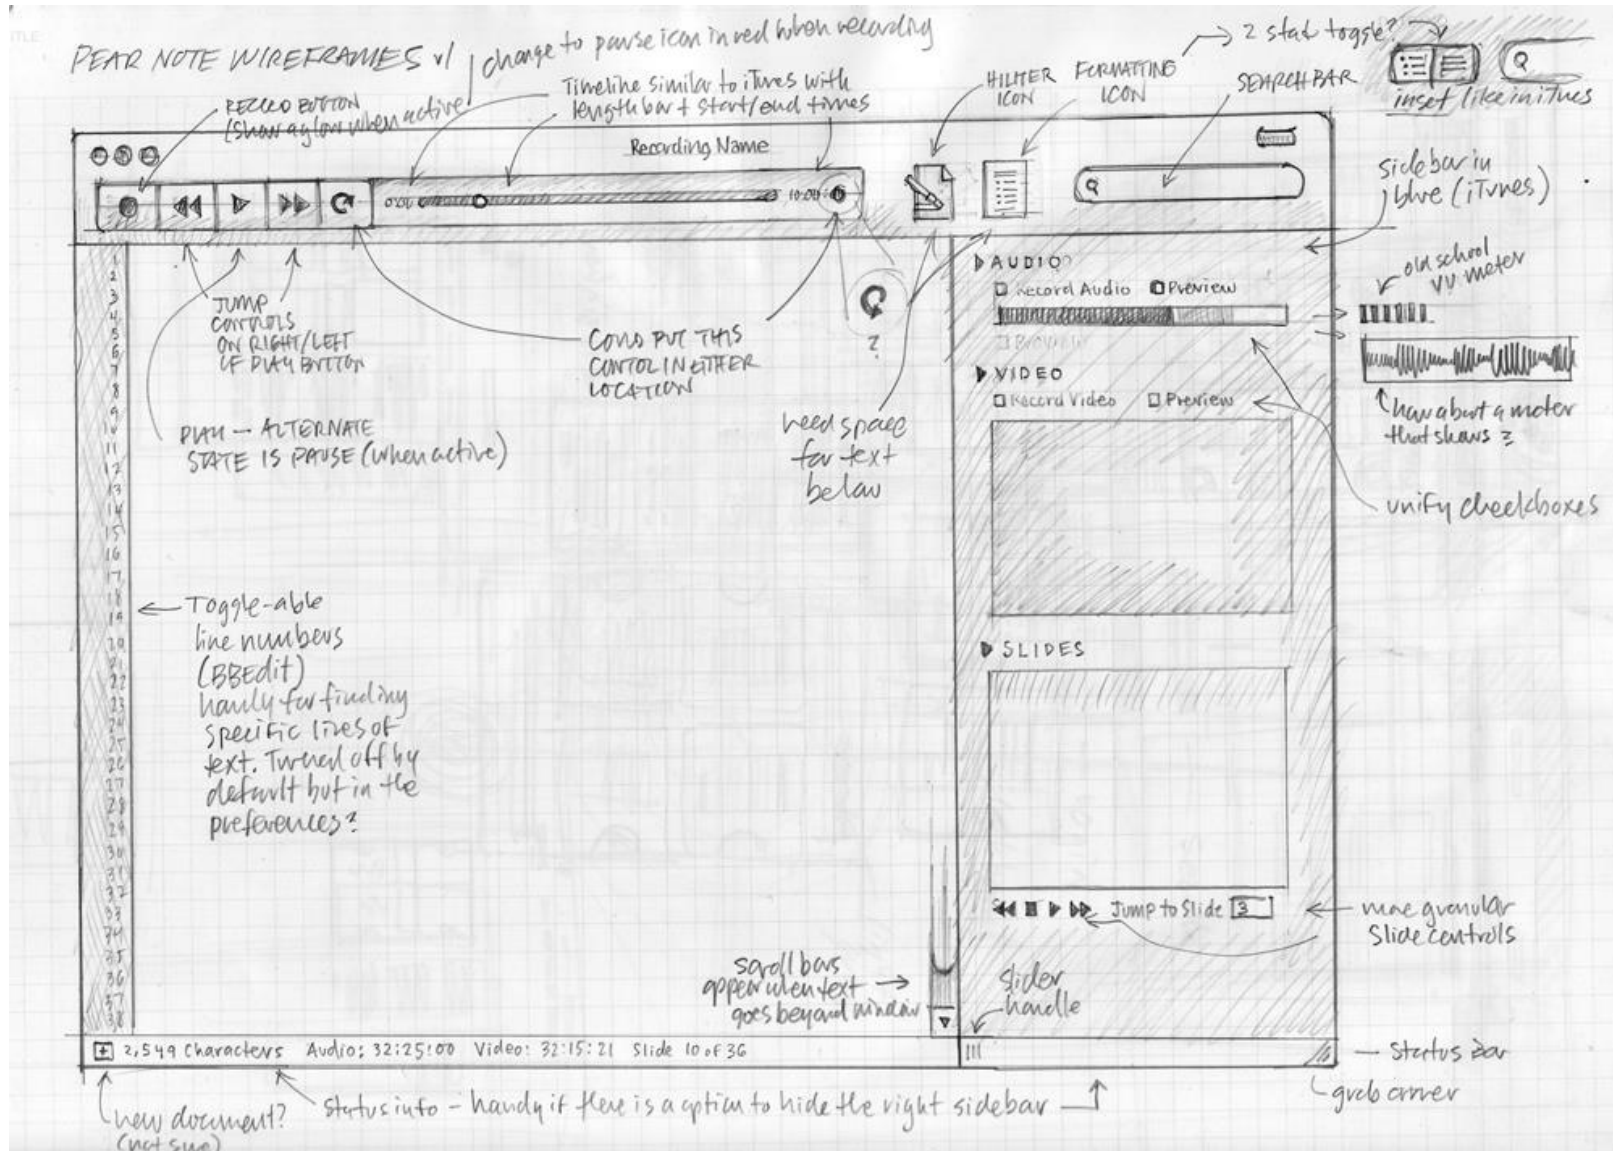 PEAR NOTE WIREFRAMES v1
change to pause icon in red when recording
RECORD BUTTON
(show a glow when active)
Timeline similar to iTunes with
length bar + start/end times
HILITER
ICON
FORMATTING
ICON
2 state toggle?
SEARCH BAR
inset like in iTunes
Recording Name
0:00
10:00
sidebar in
blue (iTunes)
JUMP
CONTROLS
ON RIGHT/LEFT
OF PLAY BUTTON
PLAY — ALTERNATE
STATE IS PAUSE (when active)
COULD PUT THIS
CONTOL IN EITHER
LOCATION
?
need space
for text
below
AUDIO
Record Audio Preview
Preview
VIDEO
Record Video Preview
old school
VU meter
how about a meter
that shows ?
unify checkboxes
1
2
3
4
5
6
7
8
9
10
11
12
13
14
15
16
17
18
19
20
21
22
23
24
25
26
27
28
29
30
31
32
33
34
35
36
37
38
Toggle-able
line numbers
(BBEdit)
handy for finding
specific lines of
text. Turned off by
default but in the
preferences?
SLIDES
Jump to Slide 3
more granular
slide controls
scroll bars
appear when text
goes beyond window
slider
handle
+ 2,549 Characters Audio: 32:25:00 Video: 32:15:21 Slide 10 of 36
Status Bar
grab corner
new document?
(not sure)
Status info - handy if there is a option to hide the right sidebar